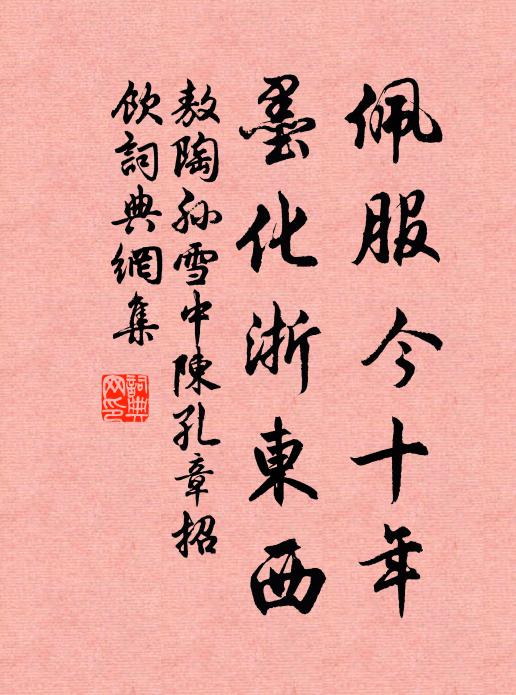 佩服今十年
墨化浙東西
敖陶孫雪中陳孔章招
飲詞典網集
詞典
网印